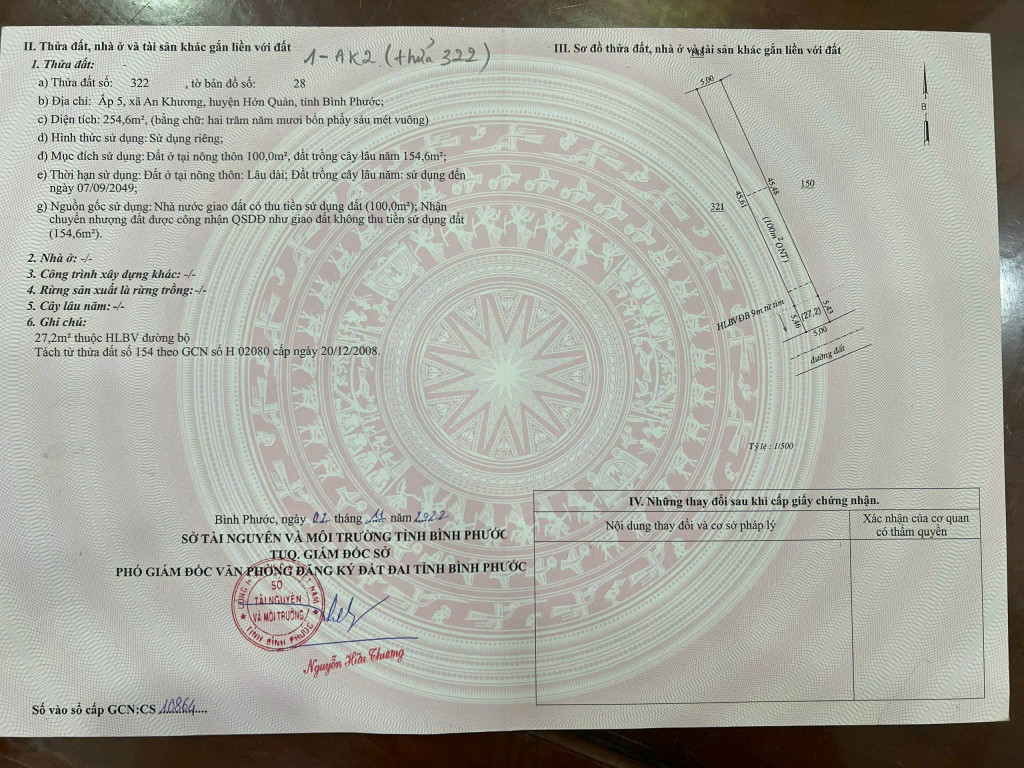 II. Thửa đất, nhà ở và tài sản khác gắn liền với đất
1-AK2 (thửa 322)
1. Thửa đất:
a) Thửa đất số: 322 , tờ bản đồ số: 28
b) Địa chỉ: Ấp 5, xã An Khương, huyện Hớn Quản, tỉnh Bình Phước;
c) Diện tích: 254,6m², (bằng chữ: hai trăm năm mươi bốn phẩy sáu mét vuông)
d) Hình thức sử dụng: Sử dụng riêng;
đ) Mục đích sử dụng: Đất ở tại nông thôn 100,0m², đất trồng cây lâu năm 154,6m²;
e) Thời hạn sử dụng: Đất ở tại nông thôn: Lâu dài; Đất trồng cây lâu năm: sử dụng đến
ngày 07/09/2049;
g) Nguồn gốc sử dụng: Nhà nước giao đất có thu tiền sử dụng đất (100,0m²); Nhận
chuyển nhượng đất được công nhận QSDĐ như giao đất không thu tiền sử dụng đất
(154,6m²).
2. Nhà ở: -/-
3. Công trình xây dựng khác: -/-
4. Rừng sản xuất là rừng trồng: -/-
5. Cây lâu năm: -/-
6. Ghi chú:
27,2m² thuộc HLBV đường bộ
Tách từ thửa đất số 154 theo GCN số H 02080 cấp ngày 20/12/2008.
Bình Phước, ngày 02 tháng 11 năm 2022
SỞ TÀI NGUYÊN VÀ MÔI TRƯỜNG TỈNH BÌNH PHƯỚC
TUQ. GIÁM ĐỐC SỞ
PHÓ GIÁM ĐỐC VĂN PHÒNG ĐĂNG KÝ ĐẤT ĐAI TỈNH BÌNH PHƯỚC
SỞ
TÀI NGUYÊN
VÀ MÔI TRƯỜNG
TỈNH BÌNH PHƯỚC
Nguyễn Hữu Thương
Số vào sổ cấp GCN:CS 10864....
III. Sơ đồ thửa đất, nhà ở và tài sản khác gắn liền với đất
5,00
B
45,48
150
45,61
321
(100m² ONT)
HLBVĐB 9m từ tim
5,46
(27,2)
5,43
5,00
đường đất
Tỷ lệ : 1/500
IV. Những thay đổi sau khi cấp giấy chứng nhận.
Nội dung thay đổi và cơ sở pháp lý
Xác nhận của cơ quan
có thẩm quyền